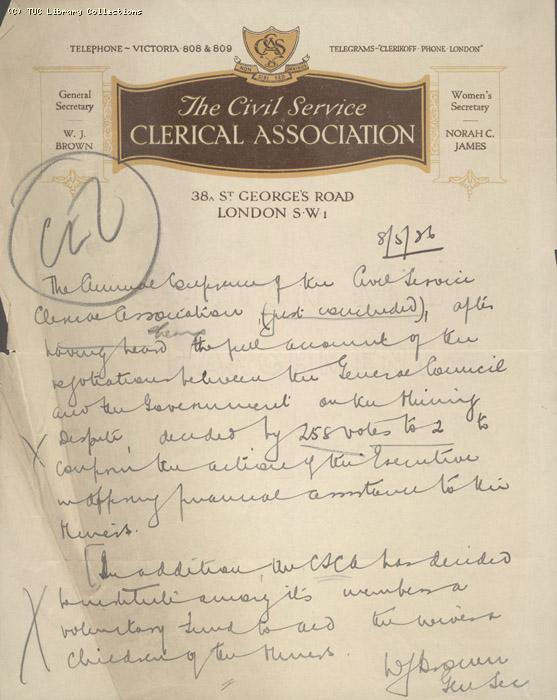 (C) TUC Library Collections
TELEPHONE ~ VICTORIA 808 & 809
TELEGRAMS ~ "CLERIKOFF · PHONE · LONDON"
General Secretary
W. J. BROWN
The Civil Service
CLERICAL ASSOCIATION
Women's Secretary
NORAH C. JAMES
38A ST GEORGE'S ROAD
LONDON S·W1
8/5/26
The Annual Conference of the Civil Service
Clerical Association, (just concluded), after
having heard the full account of the
negotiations between the General Council
and the Government on the Mining
Dispute, decided by 258 votes to 2 to
confirm the action of the Executive
in offering financial assistance to the
Miners.
[In addition, the CSCA has decided
to institute among its members a
voluntary fund to aid the wives &
children of the Miners.
WJ Brown
Gen Sec